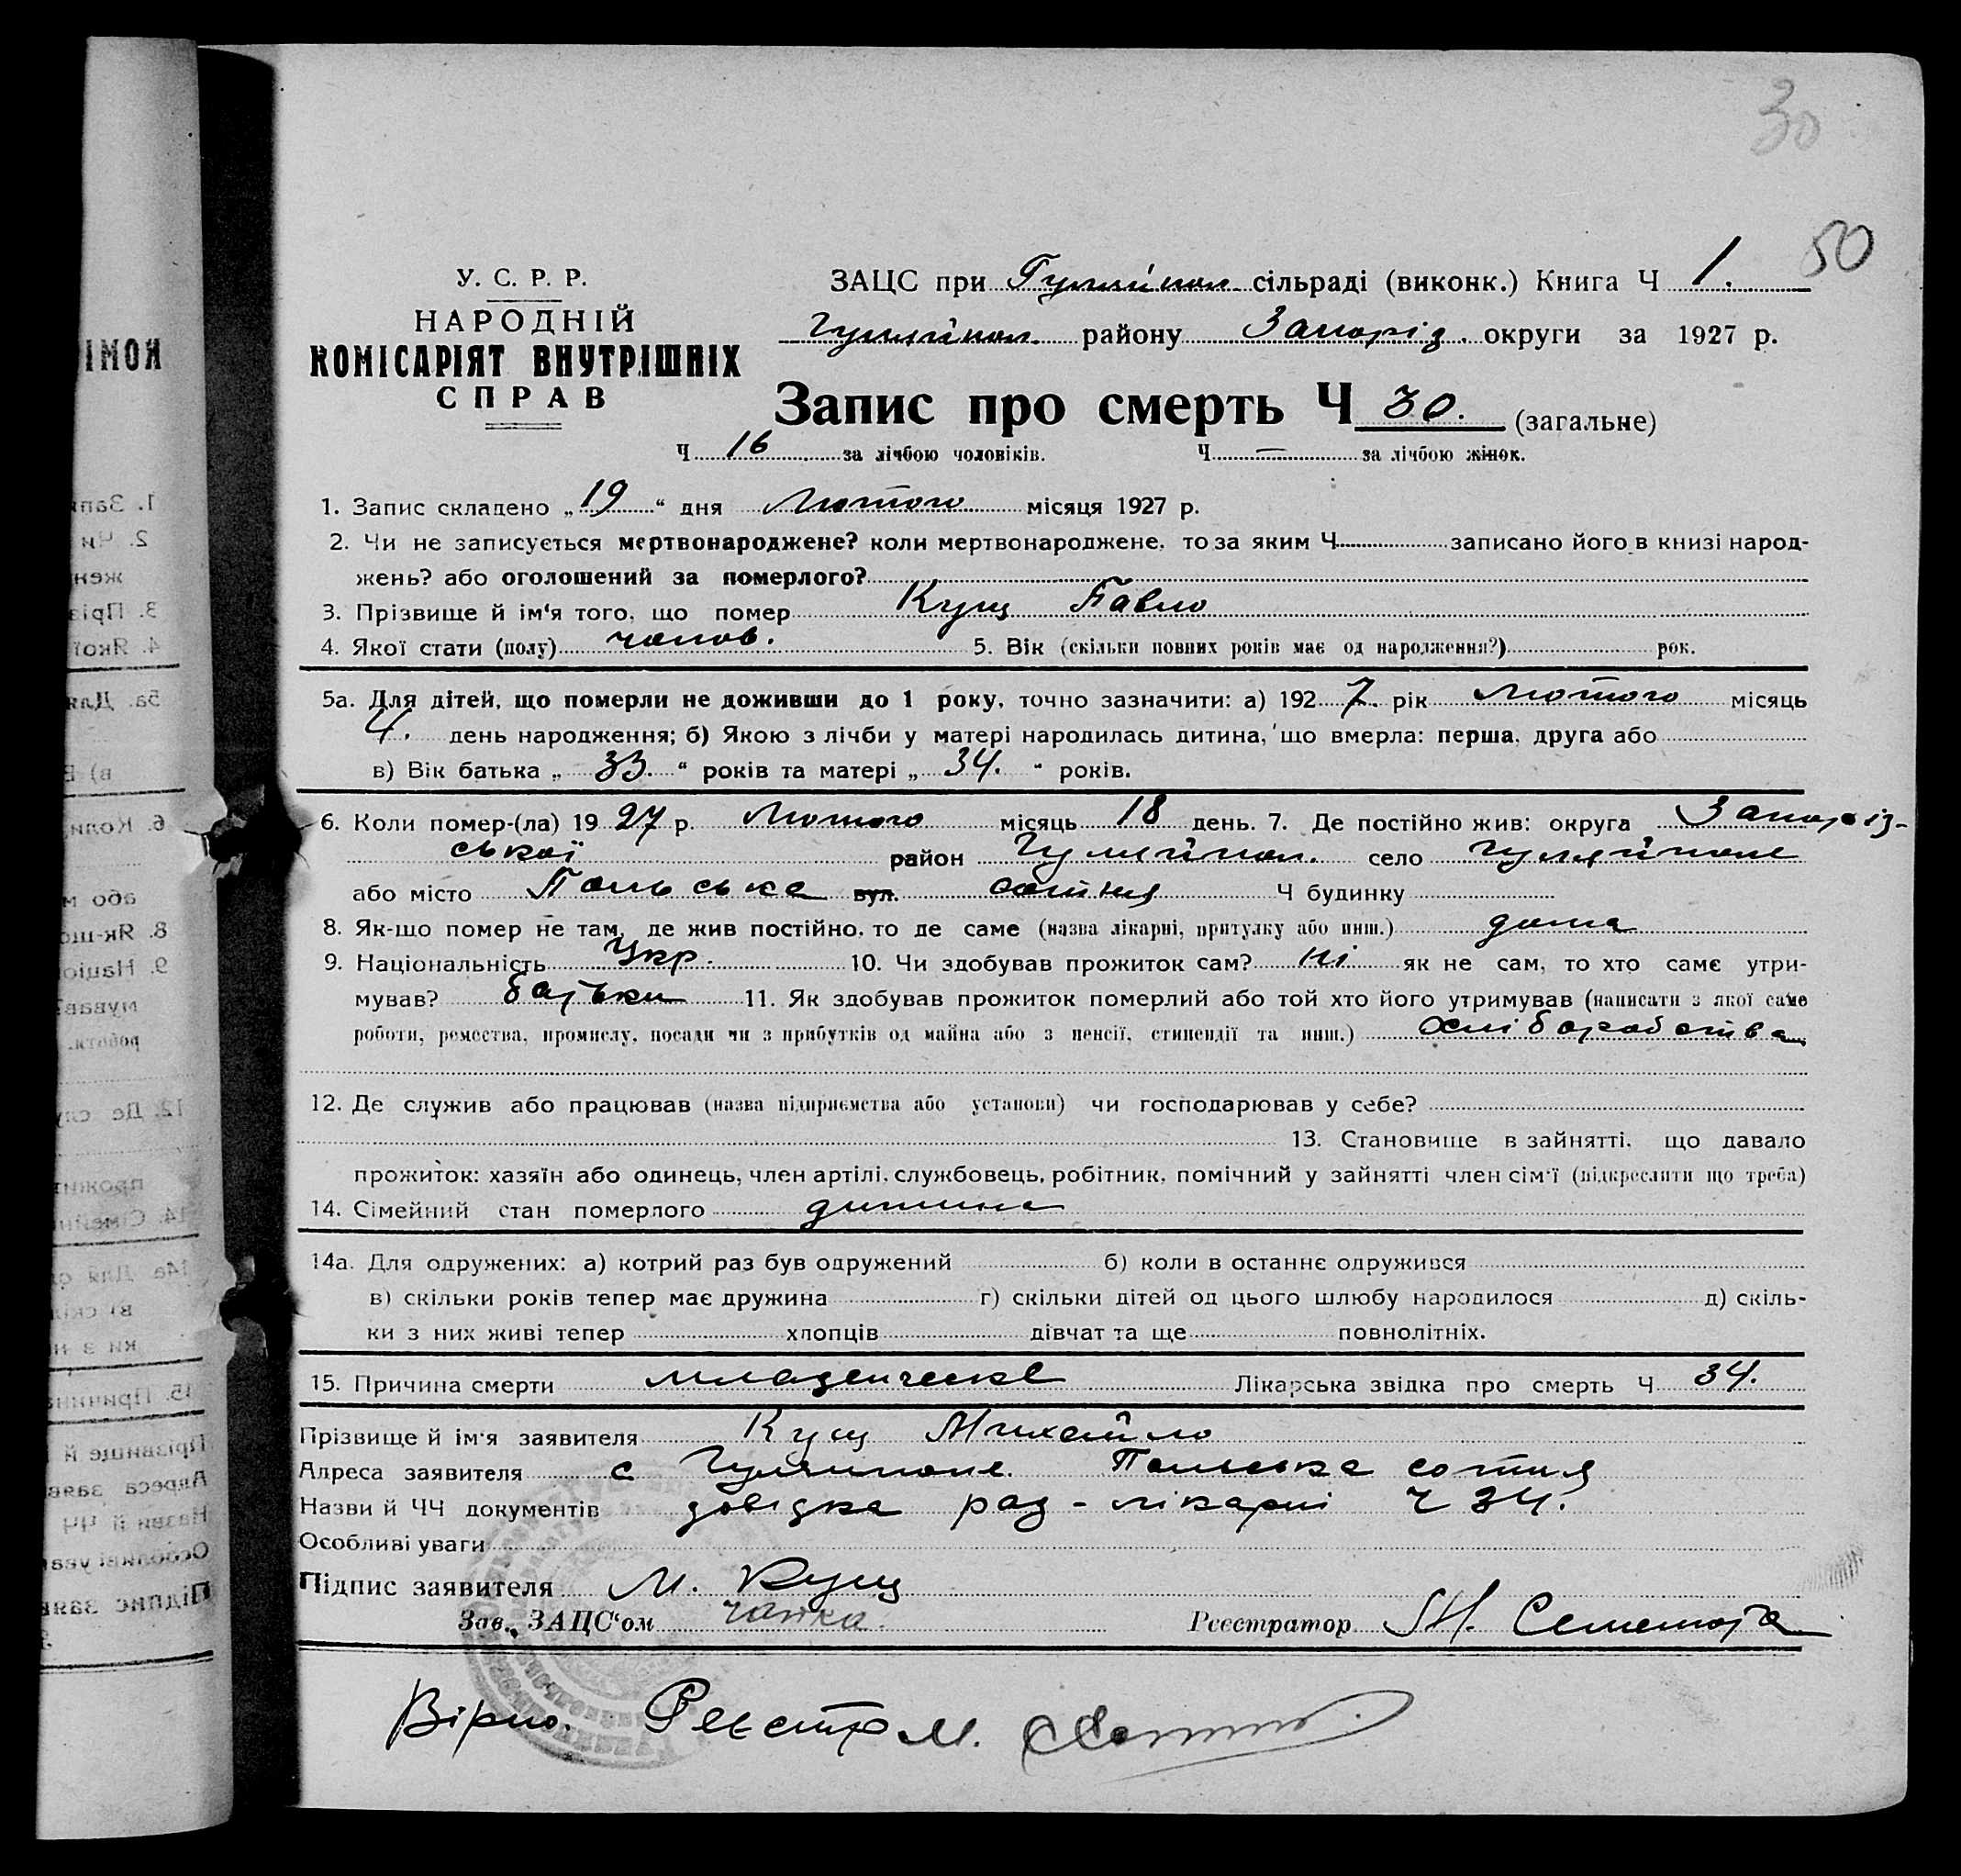 30
50
У. С. Р. Р.
НАРОДНІЙ
КОМІСАРІЯТ ВНУТРІШНІХ
СПРАВ
ЗАЦС при Гуляйпол. сільраді (виконк.) Книга Ч 1.
Гуляйпол. району Запоріз. округи за 1927 р.
Запис про смерть Ч 30. (загальне)
Ч 16 за лічбою чоловіків. Ч — за лічбою жінок.
1. Запис складено „19“ дня Лютого місяця 1927 р.
2. Чи не записується мертвонароджене? коли мертвонароджене, то за яким Ч записано його в книзі народ-
жень? або оголошений за померлого?
3. Прізвище й ім'я того, що помер Кущ Павло
4. Якої стати (полу) чолов. 5. Вік (скільки повних років має од народження?) рок.
5а. Для дітей, що померли не доживши до 1 року, точно зазначити: а) 1927. рік Лютого місяць
4. день народження; б) Якою з лічби у матері народилась дитина, що вмерла: перша, друга або
в) Вік батька „33.“ років та матері „34.“ років.
6. Коли помер-(ла) 1927 р. Лютого місяць 18 день. 7. Де постійно жив: округа Запоріз-
ської район Гуляйпол. село Гуляйполе
або місто Польська вул. сотня Ч будинку
8. Як-що помер не там, де жив постійно, то де саме (назва лікарні, притулку або инш.) дома
9. Національність Укр. 10. Чи здобував прожиток сам? ні як не сам, то хто саме утри-
мував? батьки 11. Як здобував прожиток померлий або той хто його утримував (написати з якої саме
роботи, ремества, промислу, посади чи з прибутків од майна або з пенсії, стипендії та инш.) хліборобства
12. Де служив або працював (назва підприємства або установи) чи господарював у себе?
13. Становище в зайнятті, що давало
прожиток: хазяїн або одинець, член артілі, службовець, робітник, помічний у зайнятті член сім'ї (підкреслити що треба)
14. Сімейний стан померлого дитина
14а. Для одружених: а) котрий раз був одружений б) коли в останнє одружився
в) скільки років тепер має дружина г) скільки дітей од цього шлюбу народилося д) скіль-
ки з них живі тепер хлопців дівчат та ще повнолітніх.
15. Причина смерти младенческе Лікарська звідка про смерть Ч 34.
Прізвище й ім'я заявителя Кущ Михайло
Адреса заявителя с Гуляйполе. Польська сотня
Назви й ЧЧ документів довідка рай-лікарні Ч 34.
Особливі уваги
Підпис заявителя М. Кущ
Зав. ЗАЦС'ом Чайка Реєстратор М.
Вірно. Реєстр М.